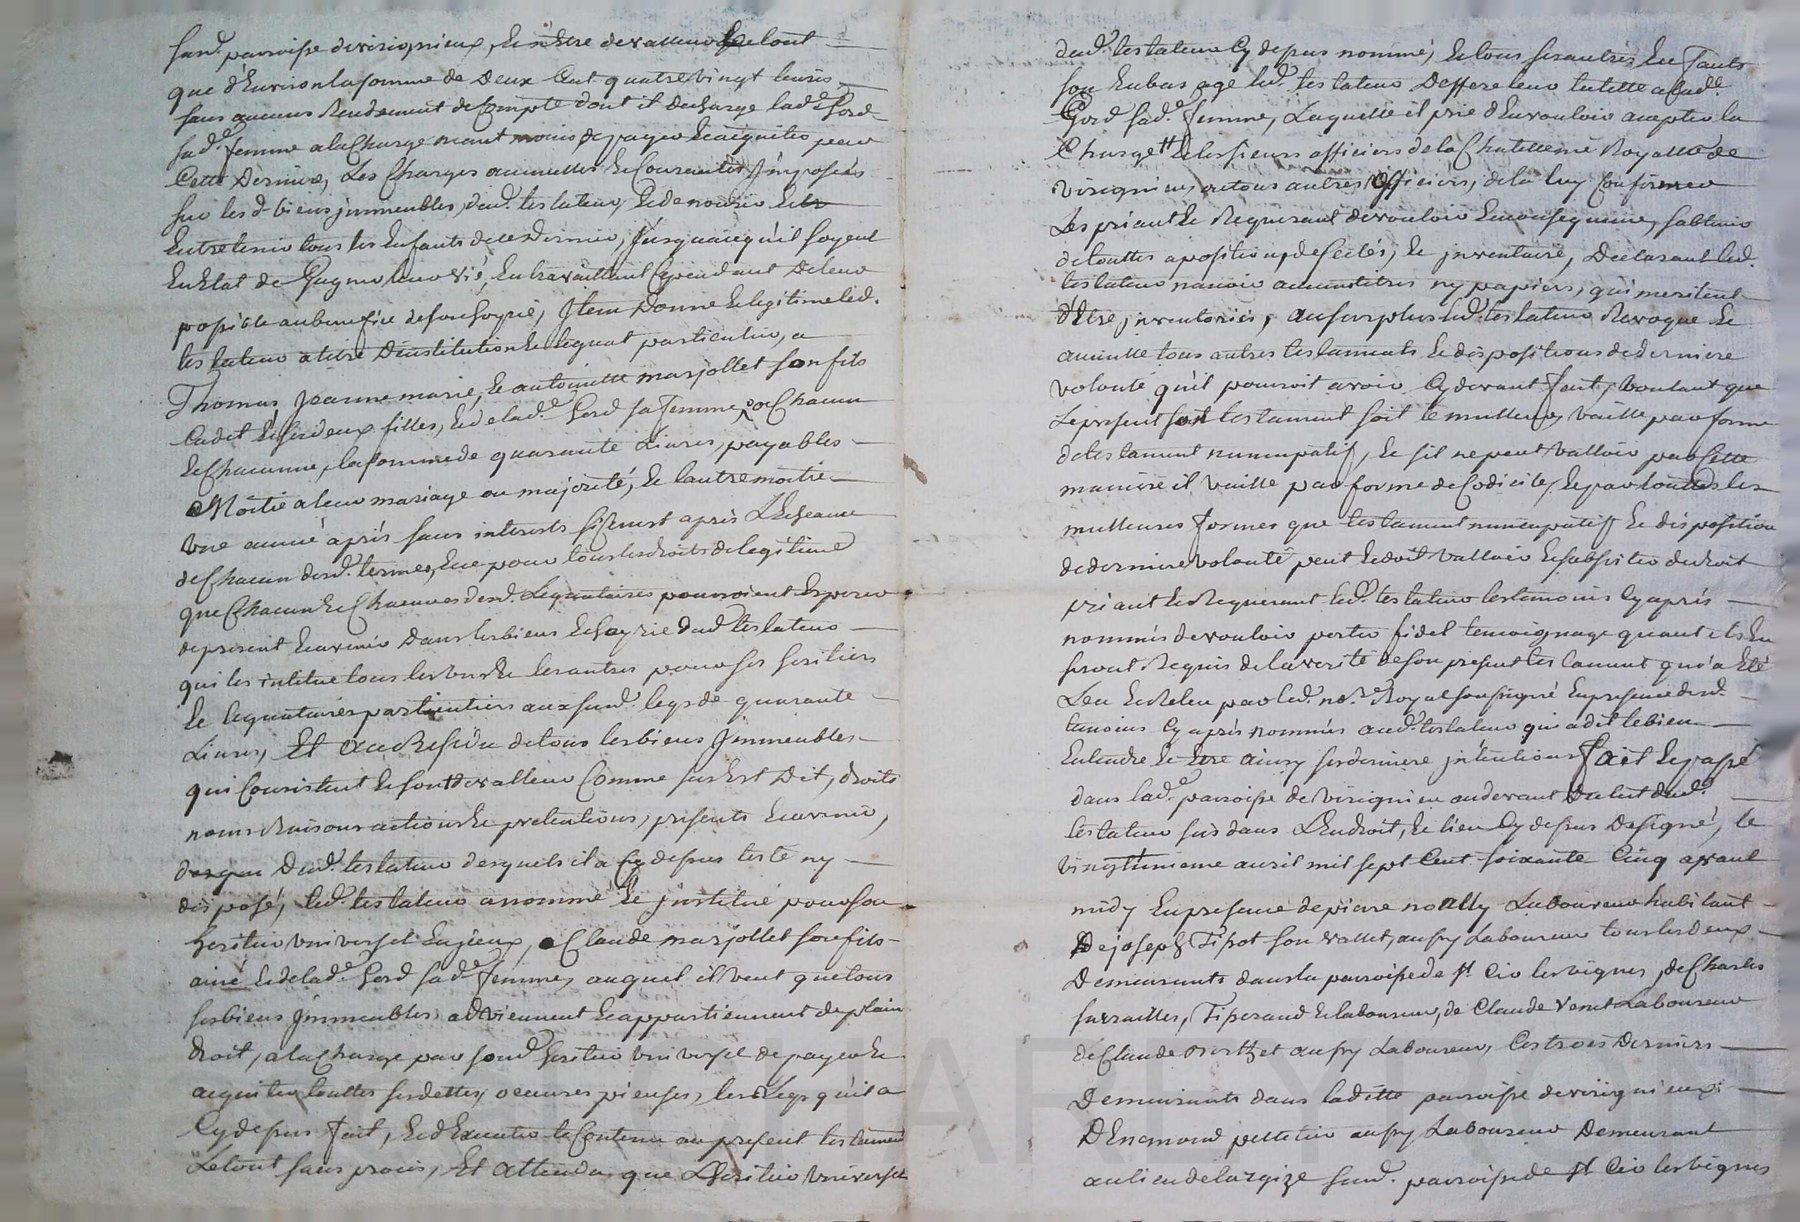 susd. parroisse de virignieux, et nêtre de valleur le tout
que d'Environ la somme de Deux Cent quatrevingt livres
sans aucuns Rendement de Compte dont il decharge lad.e Gord
sad.e femme a la Charge neant moins de payer et acquiter pour
Cette Derniere, Les Charges annuelles et Courantes Jmposées
sur lesd. biens jmmeubles, dud. testateur, et de nourir et
Entretenir tous les Enfants de ce Dernier, Jusqu'a cequ'il soyent
En Etat de Gagner leur vie, En travaillant Cependant de leur
possible au benefice de son hoyrie, Jtem Donne et legitime led.
testateur a titre D'institution et legat particulier, a
Thomas Jeanne marie, et antoinette marjollet son fils
Cadet et ses deux filles, et de lad.e Gord sa femme, a Chacun
et Chacunne, la somme de quarante Livres, payables
Moitié a leur mariage ou majorité, et l'autre moitié
une année aprés sans interests si ce n'est après L'Echeance
de Chacun desd. termes, et ce pour tous les droits de legitime
que Chacun et Chacunes desd. Legataires pourroient Esperer
de present et avenir Dans les biens et hoyrie dud. testateur
qui les institue tous les uns et les autres pour ses heritiers
et legataires particuliers aux susd. legs de quarante
Livres, Et au Residu de tous les biens Jmmeubles
qui Consistent et sont de valleur Comme sus Est Dit, droits
noms Raisons actions et pretentions, presents et avenir,
Dud. testateur desquels il a Cy dessus testé ny
disposé, led. testateur a nommé et jnstitué pour son
heritier universel En jceux, Claude marjollet son fils
ainé et de lad.e Gord sad.e femme, auquel il veut que tous
ses biens Jmmeubles adviennent et appartiennent de plain
droit, a la Charge par sond. heritier universel de payer et
acquiter touttes ses dettes, oeuvres pieuses, les Legs qu'il a
Cy dessus fait, et d'Executer le Contenu au present testament
Le tout sans procès, Et attendu que L'heritier universel
dud. testateur Cy dessus nommé, et tous ses autres Enfants
son En bas age led. testateur Deffere leur tutelle a lad.e
Gord sad.e femme, Laquelle il prie d'En vouloir accepter la
Charge et les sieurs officiers de la Chatellenie Royalle de
virignieux et tous autres officiers, de la luy Confirmer
Les priant et Requerant de vouloir En consequence, s'abtenir
de touttes apositions, de scelés, et jnventaire, Declarant led.
testateur n'avoir aucuns titres ny papiers, qui meritent
d'Etre jnventoriés, au surplus led. testateur Revoque et
annulle tous autres testaments et dispositions de derniere
volonté qu'il pourroit avoir Cy devant fait, voulant que
Le present son testament soit le meilleur, vaille par forme
de testament nuncupatif, et s'il ne peut valloir par Cette
maniere il vaille par forme de Codicile, et par touttes les
meilleures formes que testament nuncupatif et disposition
de derniere volonté peut et doit valloir et subsister de droit
priant et Requerant led. testateur les temoins Cy aprés
nommés de vouloir porter fidel temoignage quant ils En
seront Requis de la verité de son present testament qu'a Eté
Leu et Releu par led. no.re Royal soussigné En presence desd.
temoins Cy aprés nommés aud. testateur qui a dit le bien
Entendre et Etre ainsy ses derniere jntentions fait et passé
dans lad.e parroisse de virignieu au devant du lit dud.
testateur sis dans L'Endroit, et lieu Cy dessus Designé, le
vingtunieme avril mil sept Cent soixante Cinq avant
midy En presence de pierre noally Laboureur habitant
De joseph Tisot son vallet, aussy Laboureur tous les deux
Demeurants dans la parroisse de st. Cir les vignes, de Charles
Tisserand et laboureur, de Claude venet Laboureur
de Claude aussy Laboureur, Les trois Derniers
Demeurants dans laditte parroisse de virignieux
D'Enemond pelletier aussy Laboureur Demeurant
au lieu de susd. parroisse de st Cir les vignes